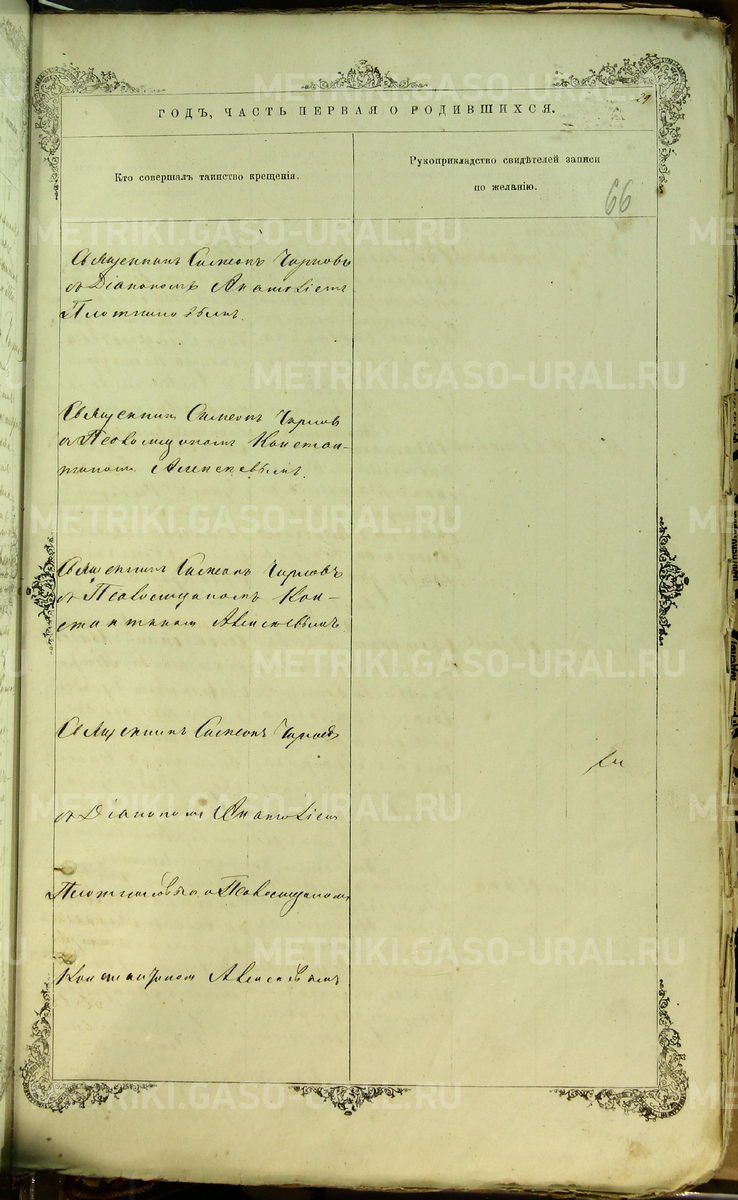 29
ГОДЪ, ЧАСТЬ ПЕРВАЯ О РОДИВШИХСЯ.
Кто совершалъ таинство крещенія.
Рукоприкладство свидѣтелей записи
по желанію.
66
Священникъ Симеонъ
съ Діакономъ Анатоліемъ
Плотниковымъ.
Священникъ Симеонъ
съ Псаломщикомъ Констан-
тиномъ Алексѣевымъ.
Священникъ Симеонъ
съ Псаломщикомъ Кон-
стантиномъ Алексѣевымъ.
Священникъ Симеонъ
съ Діакономъ Анатоліемъ
Плотниковымъ и Псаломщикомъ
Константиномъ Алексѣевымъ
METRIKI.GASO-URAL.RU